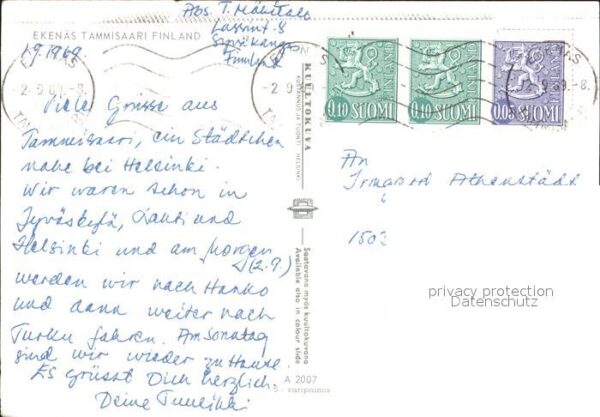 EKENÄS TAMMISAARI FINLAND
Abs. T.
Finnland
1.9.1969
-2.9.69.-8.
-2.9
69.-8.
0.10 SUOMI
0.10 SUOMI
0.05 SUOMI
KULTOKUVA
KUSTANNUS JA TUONTI HELSINKI
Viele Grüsse aus
Tammisaari, ein Städtchen
nahe bei Helsinki.
Wir waren schon in
Jyväskylä, Lahti und
Helsinki und am Morgen
(2.9)
werden wir nach Hanko
und dann weiter nach
Turku fahren. Am Sonntag
sind wir wieder zu Hause.
Es grüsst Dich herzlich,
Deine Tuulikki
An
Irmgard Athenstädt
1503
Saatavana myös kuultokuvana
Available also in colour slide
A 2007
S - varipainos
privacy protection
Datenschutz